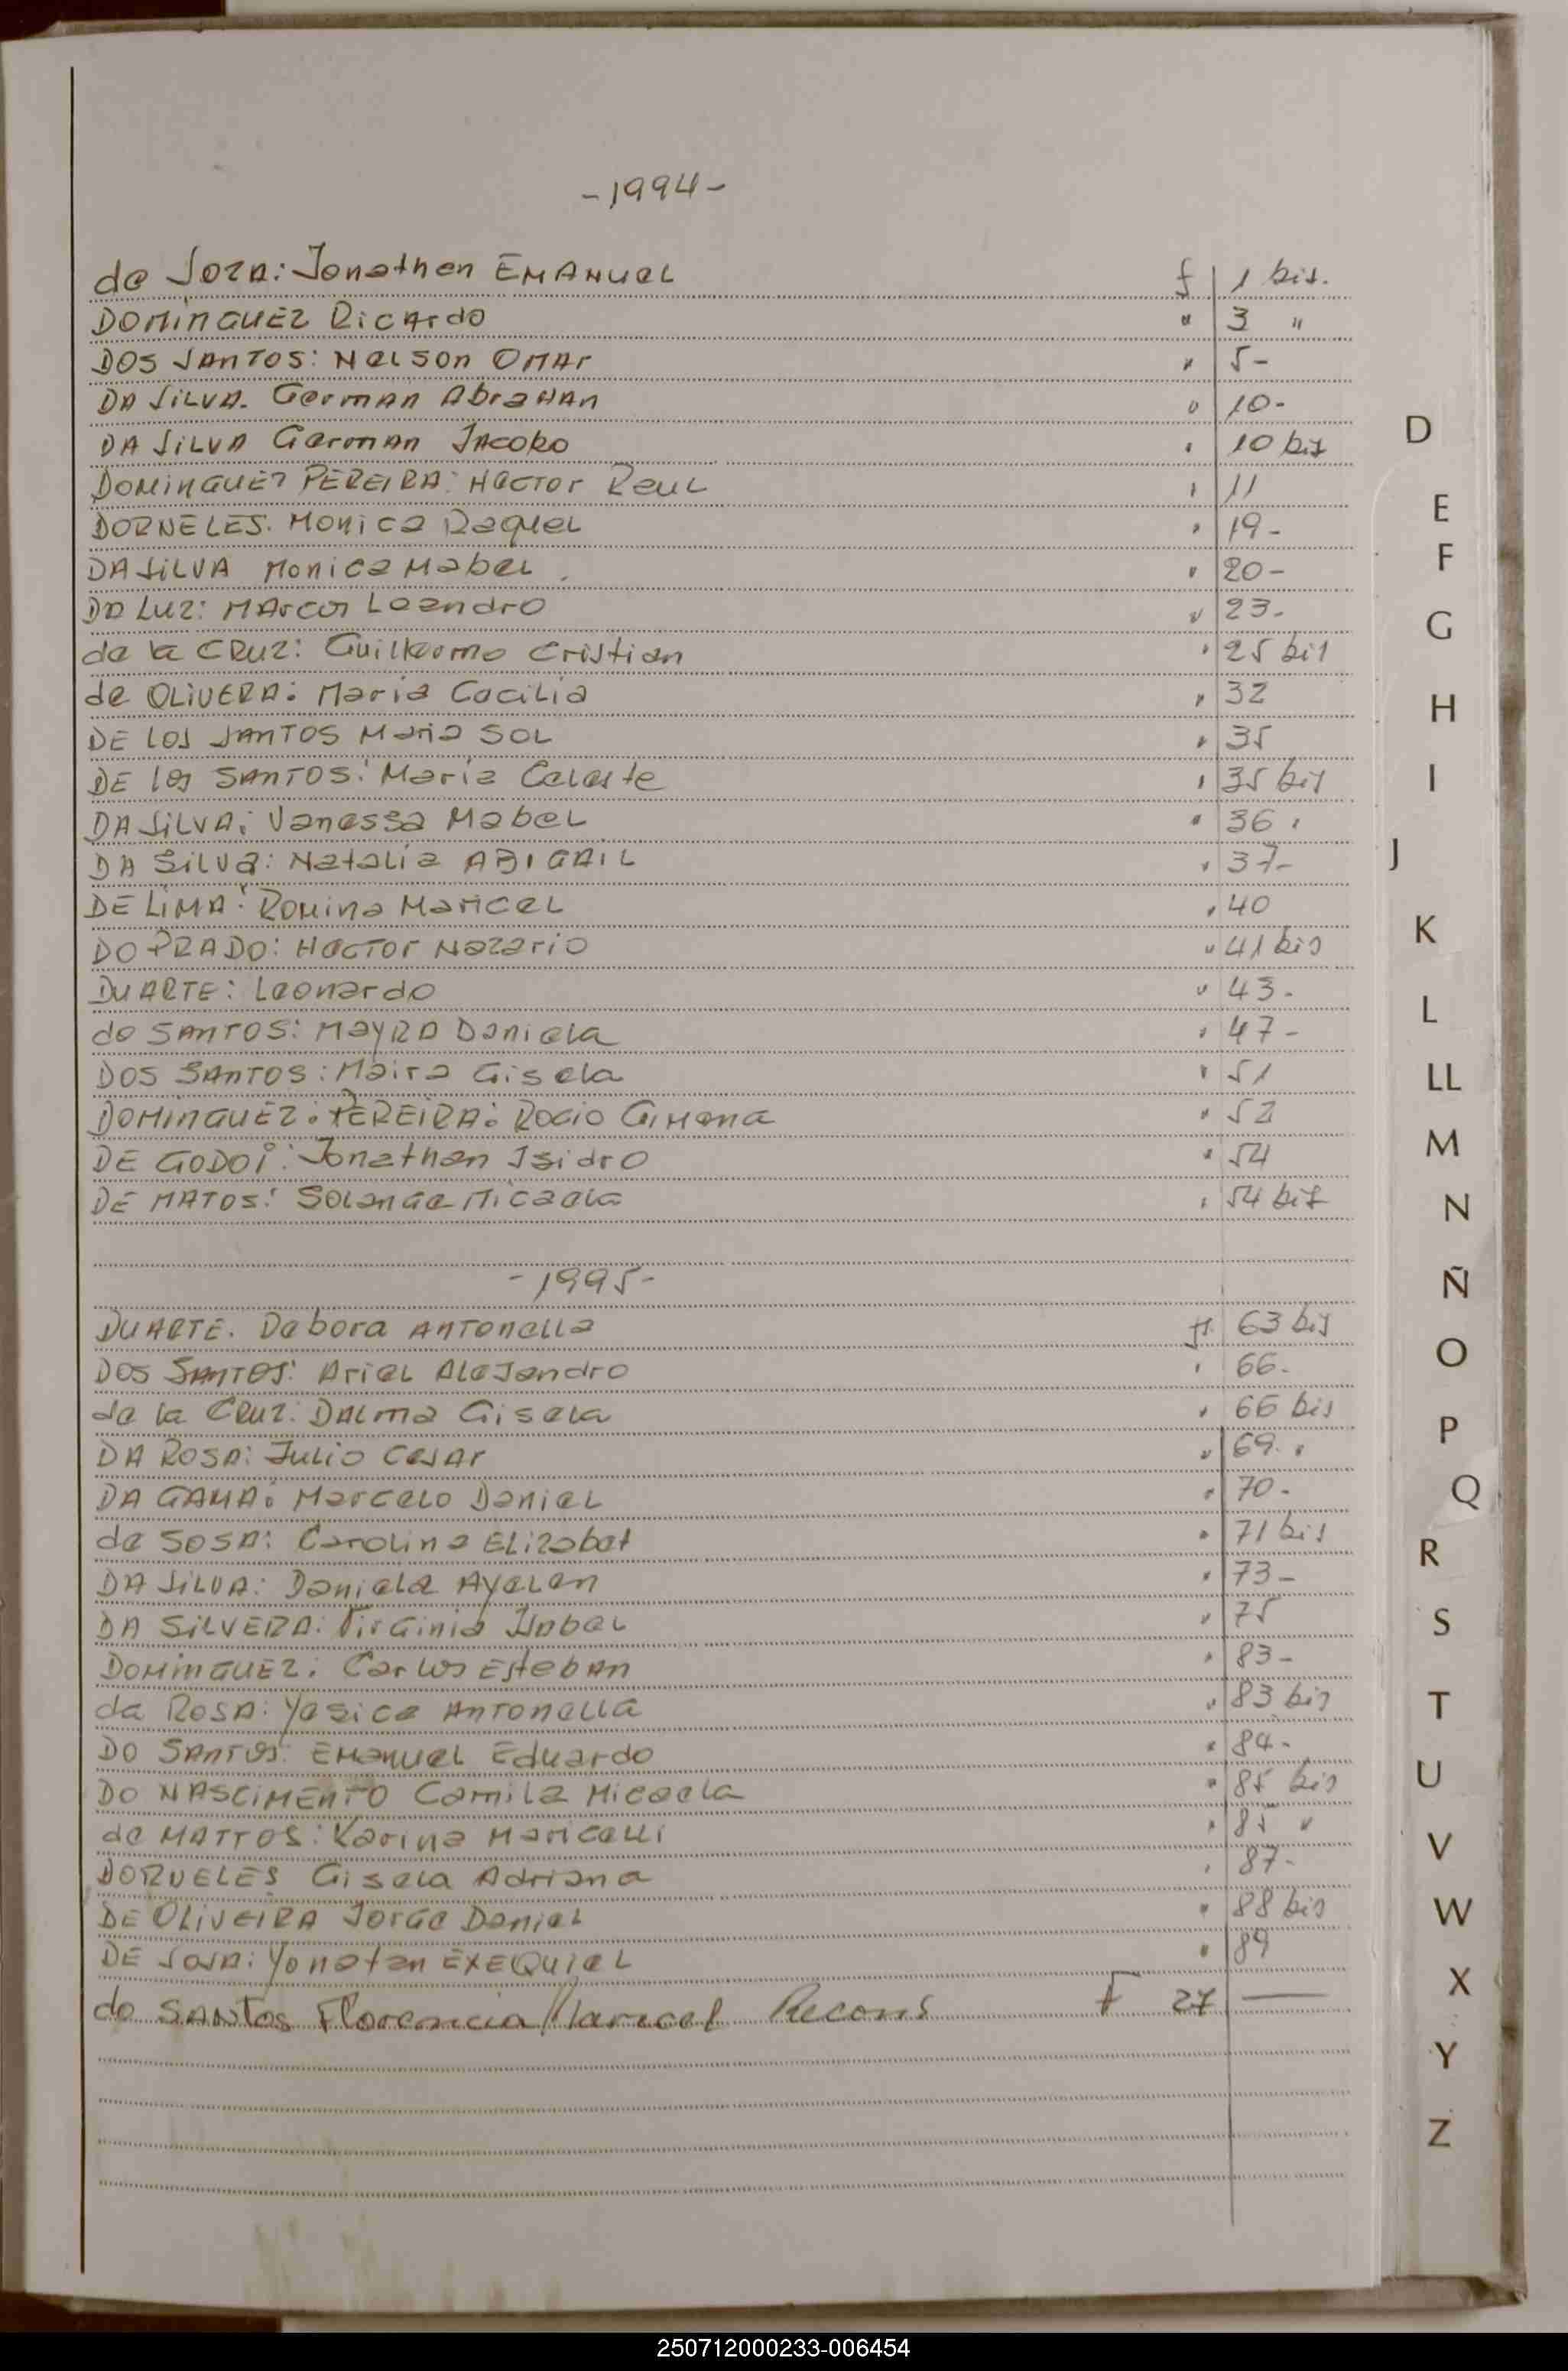 -1994-
de Sosa: Jonathan EMANUEL f 1 bis.
DOMINGUEZ Ricardo " 3 "
DOS SANTOS: Nelson OMAr " 5-
DA SILVA. German AbraHAn " 10-
DA SILVA German JAcobo " 10 bis
DOMINGUEZ PEREIRA: Hector Raul " 11
DORNELES. Monica Raquel " 19-
DA SILVA Monica Mabel. " 20-
DA LUZ: MArcos Leandro " 23-
de la CRUZ: Guillermo Cristian " 25 bis
de OLIVERA: Maria Cecilia " 32
DE LOS SANTOS Maria SOL " 35
DE los SANTOS: Maria Celeste " 35 bis
DA SILVA: Vanessa Mabel " 36.
DA SILVA: Natalia ABIGAIL " 37-
DE LIMA: Romina Maricel " 40
DO PRADO: Hector Nazario " 41 bis
DUARTE: Leonardo " 43-
do SANTOS: MayRA Daniela " 47-
DOS SANTOS: Maira Gisela " 51
DOMINGUEZ: PEREIRA: Rocio Gimena " 52
DE GODOI: Jonathan Isidro " 54
DE MATOS: Solange Micaela " 54 bis
-1995-
DUARTE. Debora ANTonella f. 63 bis
DOS SANTOS: Ariel Alejandro " 66-
de la CRUZ: DALma Gisela " 66 bis
DA ROSA: Julio CesAr " 69.
DA GAMA: Marcelo Daniel " 70-
de SOSA: Carolina Elizabet " 71 bis
DA SILVA: Daniela Ayelen " 73-
DA SILVERA: Virginia Isabel " 75
DOMINGUEZ: Carlos EstebAn " 83-
da ROSA: Yesica ANTonella " 83 bis
DO SANTOS: Emanuel Eduardo " 84-
DO NASCIMENTO Camila Micaela " 85 bis
de MATTOS: Karina Maricelli " 85 "
DORNELES Gisela Adriana " 87-
DE OLIVEIRA Jorge Daniel " 88 bis
DE SOSA: Yonatan EXEQUIEL " 89
do SANTos Florencia Maricel Recons F 27 —
D
E
F
G
H
I
J
K
L
LL
M
N
Ñ
O
P
Q
R
S
T
U
V
W
X
Y
Z
250712000233-006454